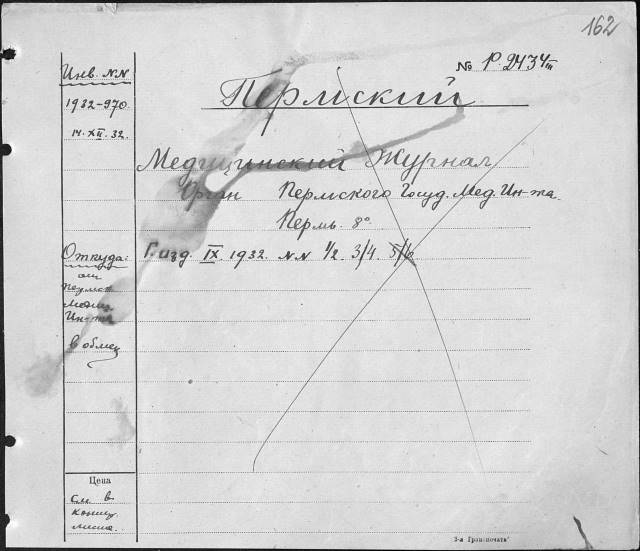 162
№ Р. 2434 III
Инв. NN
1932-970
14.XII.32.
Пермский
Медицинский Журнал
Орган Пермского Госуд. Мед. Ин-та.
Пермь. 8°
Г. изд. IX. 1932. NN 1/2. 3/4. 5/6
Откуда:
от
Медиц.
Ин-та
в обмен
Цена
См. в
конце
листа.
3-я Гранпечать"